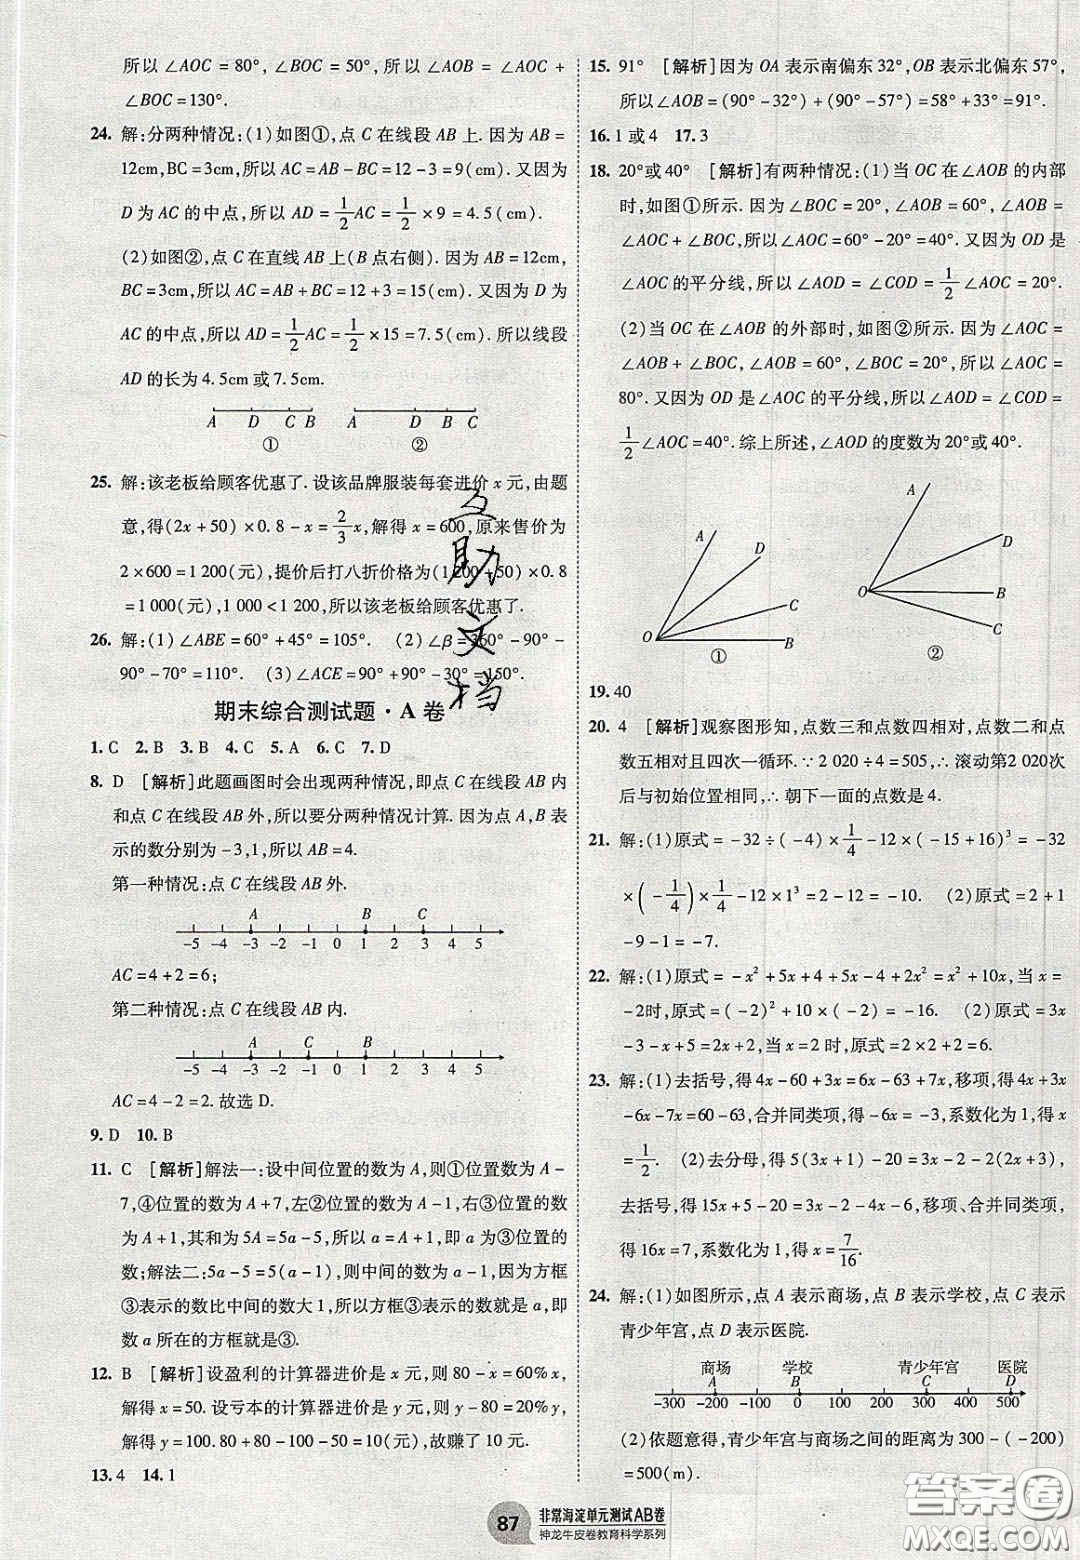 所以∠AOC=80°,∠BOC=50°,所以∠AOB=∠AOC+
∠BOC=130°.
24. 解:分两种情况:(1)如图①,点C在线段AB上.因为AB=
12cm,BC=3cm,所以AC=AB-BC=12-3=9(cm).又因为
D为AC的中点,所以AD=1/2AC=1/2×9=4.5(cm).
(2)如图②,点C在直线AB上(B点右侧).因为AB=12cm,
BC=3cm,所以AC=AB+BC=12+3=15(cm).又因为D为
AC的中点,所以AD=1/2AC=1/2×15=7.5(cm).所以线段
AD的长为4.5cm或7.5cm.
A D C B A D B C
① ②
25. 解:该老板给顾客优惠了.设该品牌服装每套进价x元,由题
意,得(2x+50)×0.8-x=2/3x,解得x=600,原来售价为
2×600=1 200(元),提价后打八折价格为(1 200+50)×0.8
=1 000(元),1 000<1 200,所以该老板给顾客优惠了.
26. 解:(1)∠ABE=60°+45°=105°. (2)∠β=360°-90°-
90°-70°=110°. (3)∠ACE=90°+90°-30°=150°.
期末综合测试题·A卷
1. C 2. B 3. B 4. C 5. A 6. C 7. D
8. D [解析]此题画图时会出现两种情况,即点C在线段AB内
和点C在线段AB外,所以要分两种情况计算.因为点A,B表
示的数分别为-3,1,所以AB=4.
第一种情况:点C在线段AB外.
A B C
-5 -4 -3 -2 -1 0 1 2 3 4 5
AC=4+2=6;
第二种情况:点C在线段AB内.
A C B
-5 -4 -3 -2 -1 0 1 2 3 4 5
AC=4-2=2.故选D.
9. D 10. B
11. C [解析]解法一:设中间位置的数为A,则①位置数为A-
7,④位置的数为A+7,左②位置的数为A-1,右③位置的数
为A+1,其和为5A=5a-5,所以a=A+1,即a为③位置的
数;解法二:5a-5=5(a-1),则中间的数为a-1,因为方框
③表示的数比中间的数大1,所以方框③表示的数就是a,即
数a所在的方框就是③.
12. B [解析]设盈利的计算器进价是x元,则80-x=60%x,
解得x=50.设亏本的计算器进价是y元,则y-80=20%y,
解得y=100.80+80-100-50=10(元),故赚了10元.
13. 4 14. 1
15. 91° [解析]因为OA表示南偏东32°,OB表示北偏东57°,
所以∠AOB=(90°-32°)+(90°-57°)=58°+33°=91°.
16. 1或4 17. 3
18. 20°或40° [解析]有两种情况:(1)当OC在∠AOB的内部
时,如图①所示.因为∠BOC=20°,∠AOB=60°,∠AOB=
∠AOC+∠BOC,所以∠AOC=60°-20°=40°.又因为OD是
∠AOC的平分线,所以∠AOD=∠COD=1/2∠AOC=20°.
(2)当OC在∠AOB的外部时,如图②所示.因为∠AOC=
∠AOB+∠BOC,∠AOB=60°,∠BOC=20°,所以∠AOC=
80°.又因为OD是∠AOC的平分线,所以∠AOD=∠COD=
1/2∠AOC=40°.综上所述,∠AOD的度数为20°或40°.
A D C B O ①
A D B C O ②
19. 40
20. 4 [解析]观察图形知,点数三和点数四相对,点数二和点
数五相对且四次一循环.∵2 020÷4=505,∴滚动第2 020次
后与初始位置相同,∴朝下一面的点数是4.
21. 解:(1)原式=-32÷(-4)×1/4-12×(-15+16)³=-32
×(-1/4)×1/4-12×1³=2-12=-10. (2)原式=2+1
-9-1=-7.
22. 解:(1)原式=-x²+5x+4+5x-4+2x²=x²+10x,当x=
-2时,原式=(-2)²+10×(-2)=-16. (2)原式=3x
-3-x+5=2x+2,当x=2时,原式=2×2+2=6.
23. 解:(1)去括号,得4x-60+3x=6x-63+7x,移项,得4x+3x
-6x-7x=60-63,合并同类项,得-6x=-3,系数化为1,得x
=1/2. (2)去分母,得5(3x+1)-20=3x-2-2(2x+3),
去括号,得15x+5-20=3x-2-4x-6,移项、合并同类项,
得16x=7,系数化为1,得x=7/16.
24. 解:(1)如图所示,点A表示商场,点B表示学校,点C表示
青少年宫,点D表示医院.
商场 学校 青少年宫 医院
A B C D
-300 -200 -100 0 100 200 300 400 500
(2)依题意得,青少年宫与商场之间的距离为300-(-200)
=500(m).
互助文档
87
非常海淀单元测试AB卷
神龙牛皮卷教育科学系列
答案圈
MXQE.COM